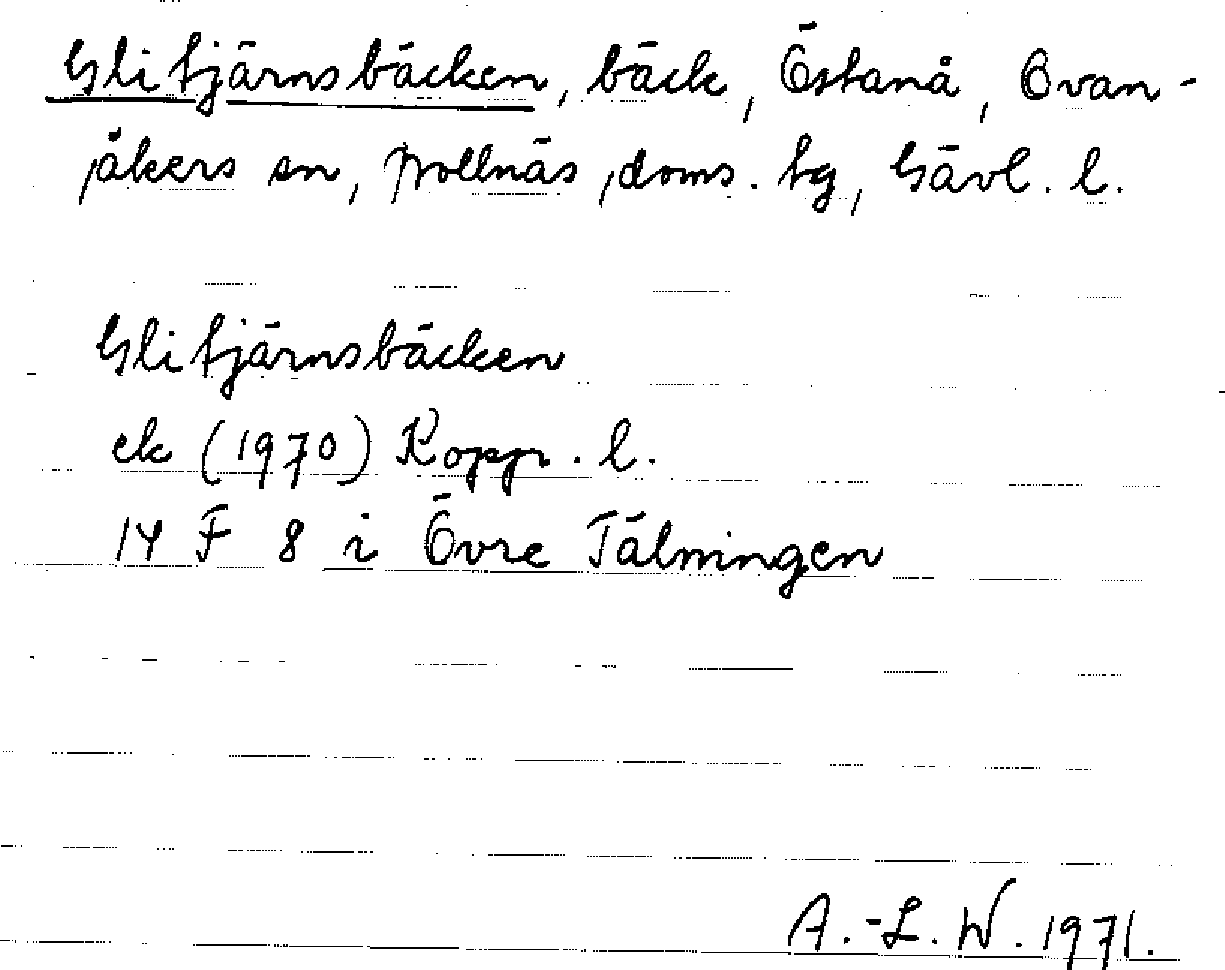 Glitjärnsbäcken, bäck, Östanå, Ovan-
åkers sn, Bollnäs doms. tg, Gävl. l.
Glitjärnsbäcken
ek (1970) Kopp. l.
14 F 8 i Övre Tälningen
A.-L. W. 1971.